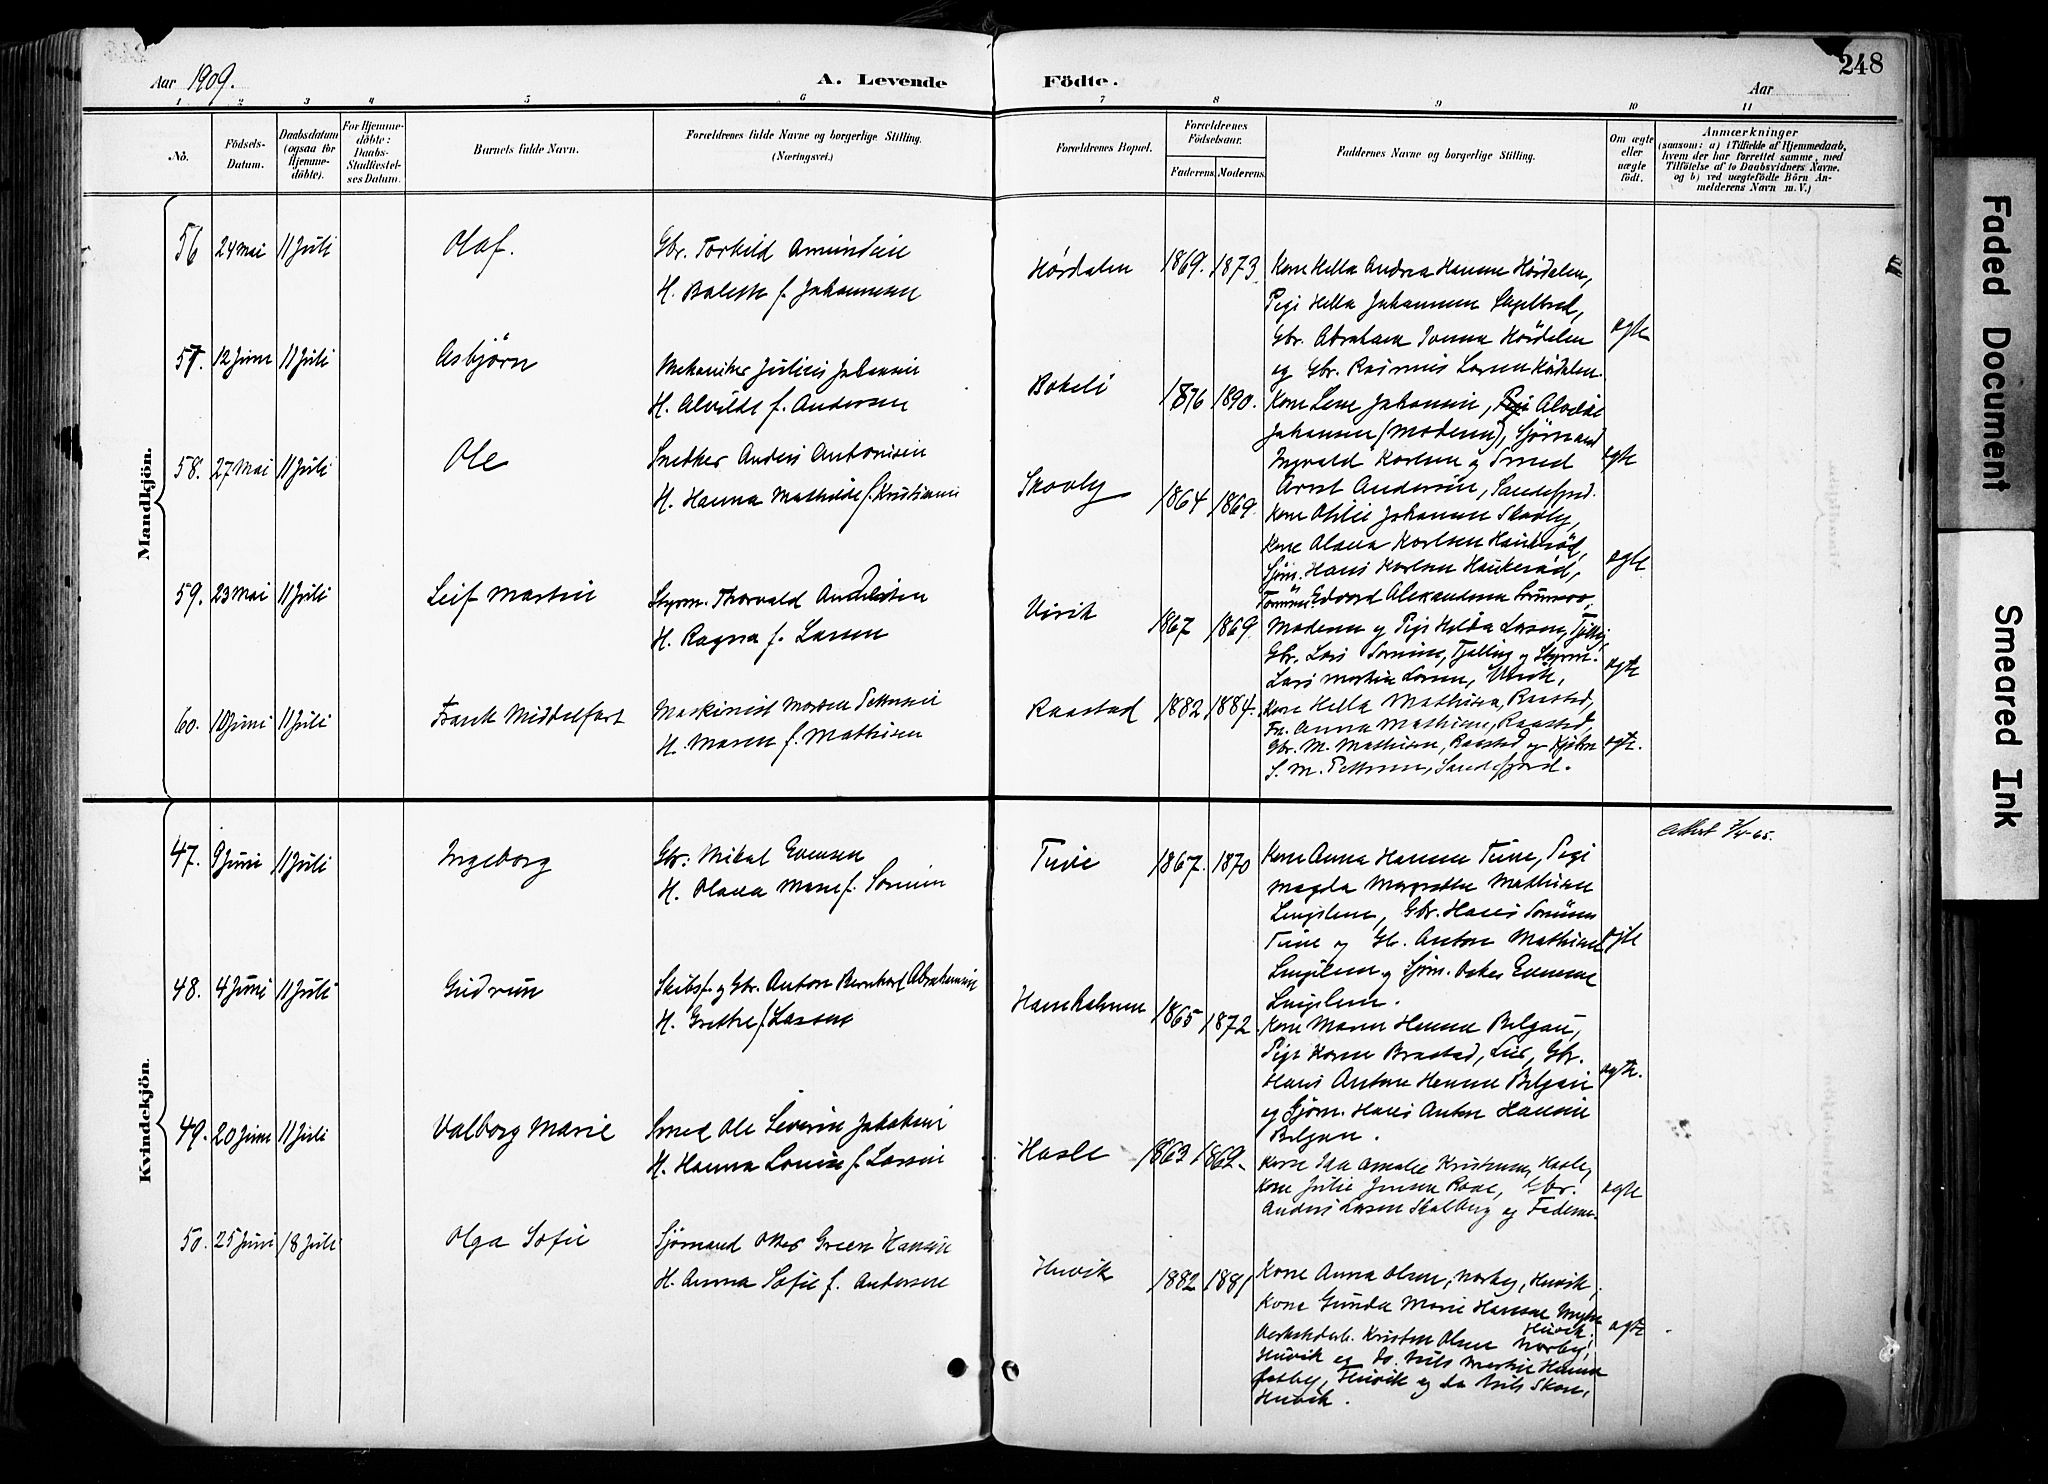 248
Aar 1909.
A. Levende
Födte.
Aar
1 2 3 4 5 6 7 8 9 10 11
No.
Födsels-Datum.
Daabsdatum (ogsaa for Hjemme-döbte).
For Hjemme-döbte: Daabs-Stadfæstel-ses Datum.
Barnets fulde Navn.
Forældrenes fulde Navne og borgerlige Stilling.
(Næringsvei.)
Forældrenes Bopæl.
Forældrenes Födselsaar.
Faderens. Moderens.
Faddernes Navne og borgerlige Stilling.
Om ægte eller uægte födt.
Anmærkninger
(saasom: a) i Tilfælde af Hjemmedaab,
hvem der har forrettet samme, med
Tilföielse af to Daabsvidners Navne,
og b) ved uægtefödte Börn An-
melderens Navn m. V.)
Mandkjön.
56 24 Mai 11 Juli Olaf.
Gbr. Torkild Amundsen
H. f. Johannesen
Hørdalen 1869. 1873.
Kone Hella Andrea Hansen Hørdalen,
Pige Hella Johannesen
Gbr. Abraham Hørdalen
og Gbr. Rasmus Larsen Hørdalen.
ægte
57. 12 Juni 11 Juli Asbjørn
Mekaniker Julius Johansen
H. Alvilde f. Andersen
Bokeli 1876 1890.
Kone Lene Johansen, Alvilde
Johansen (Moderen), Sjømand
Ingvald Karlsen og Smed
Arnt Andersen, Sandefjord.
ægte
58. 27 Mai 11 Juli Ole
Snedker Anders Antonisen
H. Hanna Mathilde f. Kristiansen
Skovly 1864 1869.
Kone Otilie Johansen Skovly,
Kone Olava Karlsen Haukerød,
Sjøm. Hans Karlsen Haukerød,
Tømm. Edvard Aleksandersen
ægte
59. 23 Mai 11 Juli Leif Martin
Styrm. Thorvald Andersen
H. Ragna f. Larsen
Virik 1867 1869.
Moderen og Pige Helda Larsen, Tjølling,
Gbr. Lars Tjølling og Styrm.
Lars Martin Larsen, Virik,
ægte
60. 10 Juni 11 Juli Frank Middelfart
Maskinist Morten Pettersen
H. Maren f. Mathisen
Raastad 1882 1884.
Kone Hella Mathisen, Raastad,
Fr. Anna Mathisen, Raastad,
Gbr. M. Mathisen, Raastad og
S. M. Pettersen, Sandefjord.
ægte.
Kvindekjön.
47. 9 Juni 11 Juli Ingeborg
Gbr. Mikal Evensen
H. Olava Marie f. Sørensen
Tuve 1867. 1870
Kone Anna Hansen Tuve, Pige
Magda Margrethe Mathisen
Lingelem, Gbr. Hans Sørensen
Tuve og Gb. Anton Mathisen
Lingelem og Sjøm. Oskar Evensen
Lingelem.
ægte
Attest
48. 4 Juni 11 Juli Gudrun
Skibsf. og Gbr. Anton Bernhard Abrahamsen
H. Grethe f. Larsen
1865 1872.
Kone Maren Hansen Belgau,
Pige Karen Braatad, Lier, Gbr.
Hans Anton Hansen Belgau
og Sjøm. Hans Anton Hansen
Belgau.
ægte.
49. 20 Juni 11 Juli Valborg Marie
Smed Ole Severin Jakobsen
H. Hanna Lovise f. Larsen
Hasle 1863 1869.
Kone Ida Amalie Kristensen, Hasle,
Kone Julie Jensen Gbr.
Anders Larsen Skalberg og Faderen.
ægte
50. 25 Juni 18 Juli Olga Sofie
Sjømand Otto Green Hansen
H. Anna Sofie f. Andersen
Huvik 1882 1881
Kone Anna Olsen, Norby, Huvik,
Kone Gunda Marie Hansen
Huvik,
Kristen Olsen Norby,
Huvik og do. Nils Martin Hansen
Huvik og do Nils
Huvik.
ægte
Faded Document
Smeared Ink